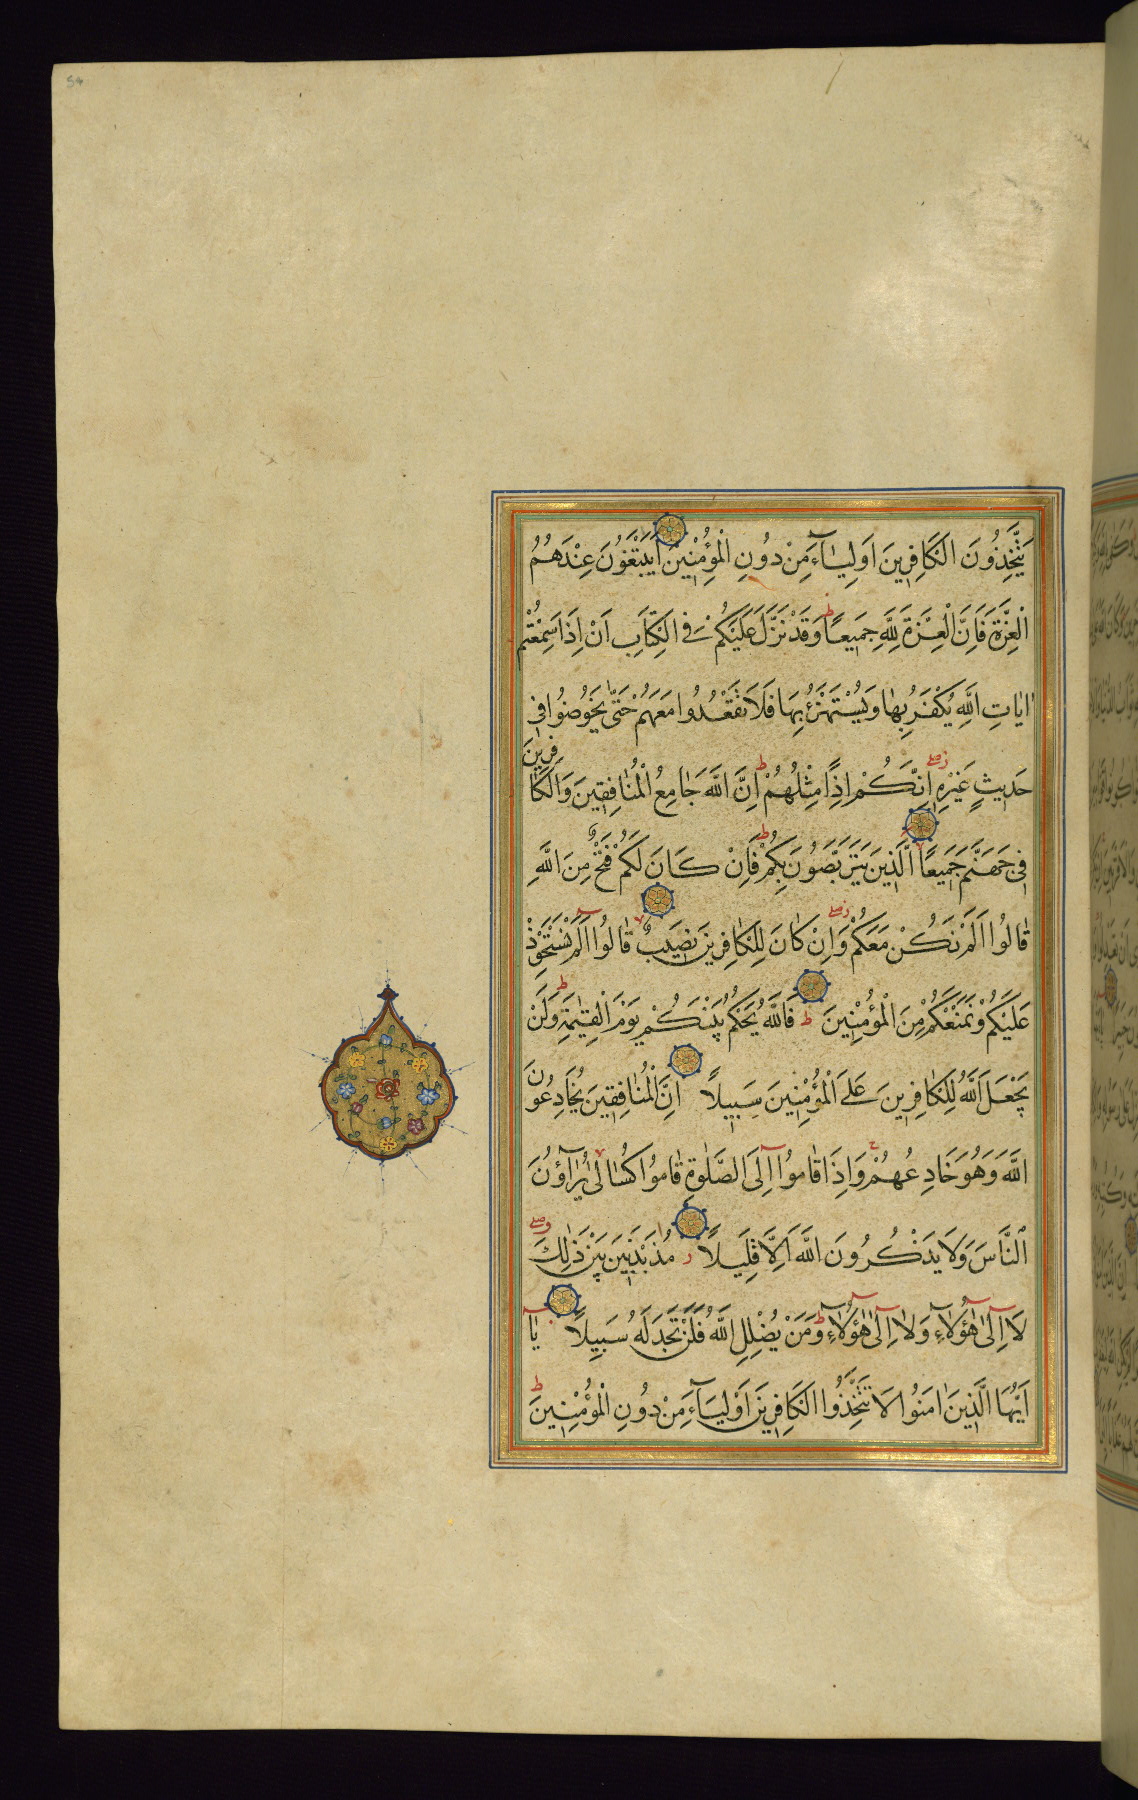 يَتَّخِذُونَ الْكَافِرِينَ اَوْلِيَآءَ مِنْ دُونِ الْمُؤْمِنِينَ اَيَبْتَغُونَ عِنْدَهُمُ
الْعِزَّةَ فَاِنَّ الْعِزَّةَ لِلّٰهِ جَمِيعًا وَقَدْ نَزَّلَ عَلَيْكُمْ فِي الْكِتَابِ اَنْ اِذَا سَمِعْتُمْ
اٰيَاتِ اللّٰهِ يُكْفَرُ بِهَا وَيُسْتَهْزَئُ بِهَا فَلَا تَقْعُدُوا مَعَهُمْ حَتّٰى يَخُوضُوا فِي
حَدِيثٍ غَيْرِهِ اِنَّكُمْ اِذًا مِثْلُهُمْ اِنَّ اللّٰهَ جَامِعُ الْمُنَافِقِينَ وَالْكَافِرِينَ
فِي جَهَنَّمَ جَمِيعًا الَّذِينَ يَتَرَبَّصُونَ بِكُمْ فَاِنْ كَانَ لَكُمْ فَتْحٌ مِنَ اللّٰهِ
قَالُوا اَلَمْ نَكُنْ مَعَكُمْ وَاِنْ كَانَ لِلْكَافِرِينَ نَصِيبٌ قَالُوا اَلَمْ نَسْتَحْوِذْ
عَلَيْكُمْ وَنَمْنَعْكُمْ مِنَ الْمُؤْمِنِينَ فَاللّٰهُ يَحْكُمُ بَيْنَكُمْ يَوْمَ الْقِيٰمَةِ وَلَنْ
يَجْعَلَ اللّٰهُ لِلْكَافِرِينَ عَلَى الْمُؤْمِنِينَ سَبِيلًا اِنَّ الْمُنَافِقِينَ يُخَادِعُونَ
اللّٰهَ وَهُوَ خَادِعُهُمْ وَاِذَا قَامُوا اِلَى الصَّلٰوةِ قَامُوا كُسَالٰى يُرَآؤُنَ
النَّاسَ وَلَا يَذْكُرُونَ اللّٰهَ اِلَّا قَلِيلًا مُذَبْذَبِينَ بَيْنَ ذٰلِكَ
لَا اِلٰى هٰؤُلَاءِ وَلَا اِلٰى هٰؤُلَاءِ وَمَنْ يُضْلِلِ اللّٰهُ فَلَنْ تَجِدَ لَهُ سَبِيلًا يَا
اَيُّهَا الَّذِينَ اٰمَنُوا لَا تَتَّخِذُوا الْكَافِرِينَ اَوْلِيَآءَ مِنْ دُونِ الْمُؤْمِنِينَ